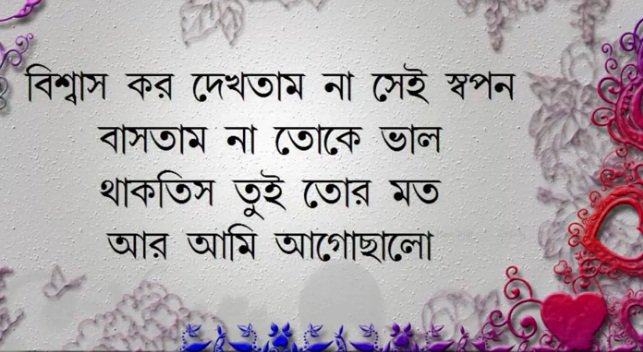 বিশ্বাস কর দেখতাম না সেই স্বপন
বাসতাম না তোকে ভাল
থাকতিস তুই তোর মত
আর আমি আগোছালো